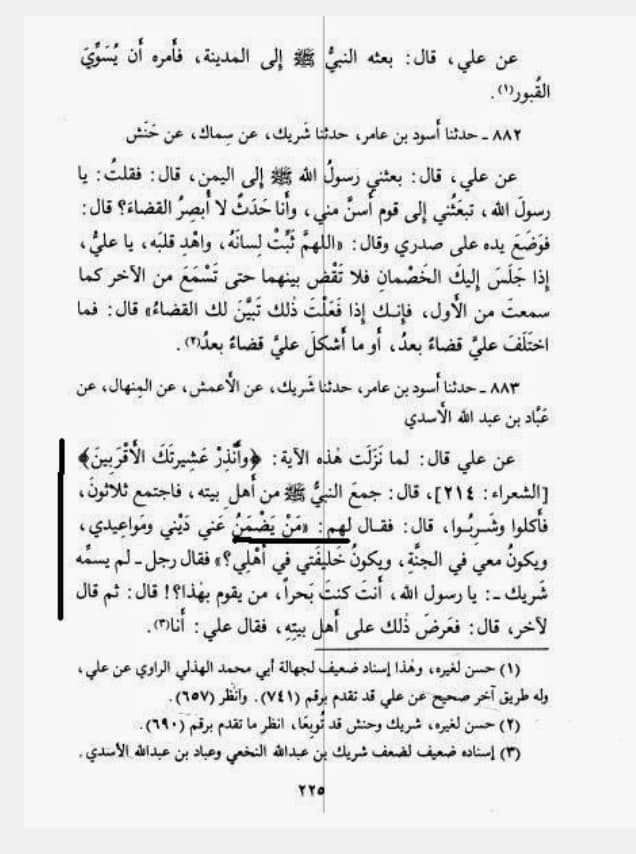 عن علي، قال: بعثه النبيُّ ﷺ إلى المدينة، فأمره أن يُسَوِّيَ
القُبور(١).
٨٨٢ ـ حدثنا أسود بن عامر، حدثنا شَريك، عن سِماك، عن حَنَش
عن علي، قال: بعثني رسولُ الله ﷺ إلى اليمن، قال: فقلتُ: يا
رسولَ الله، تبعَثُني إلى قوم أسنَّ مني، وأنا حَدَثٌ لا أُبصِرُ القضاءَ؟ قال:
فوَضَعَ يده على صدري وقال: «اللهمَّ ثَبِّتْ لِسانَهُ، واهْدِ قلبَه، يا عليُّ،
إذا جَلَسَ إليكَ الخَصْمانِ فلا تَقْضِ بينهما حتى تَسْمَعَ من الآخر كما
سمعتَ من الأول، فإنك إذا فَعَلْتَ ذلك تَبيَّنَ لك القضاءُ» قال: فما
اختَلَفَ عليَّ قضاءٌ بعدُ، أو ما أَشكلَ عليَّ قضاءٌ بعدُ(٢).
٨٨٣ ـ حدثنا أسود بن عامر، حدثنا شَريك، عن الأعمش، عن المِنهال، عن
عَبَّاد بن عبد الله الأسدي
عن علي قال: لما نَزَلَت هٰذه الآية: ﴿وأَنْذِرْ عَشيرتَكَ الأَقْرَبينَ﴾
[الشعراء: ٢١٤]، قال: جمعَ النبيُّ ﷺ من أهلِ بيته، فاجتمع ثلاثونَ،
فأكلوا وشَرِبُوا، قال: فقال لهم: «مَنْ يَضْمَنُ عَني دَيْني ومَواعِيدي،
ويكونُ معي في الجنَّةِ، ويكونُ خَليفَتي في أهْلي؟» فقال رجل ـ لم يسمِّه
شَريك ـ: يا رسول الله، أنتَ كنتَ بَحراً، من يقوم بهٰذا؟! قال: ثم قال
لآخر، قال: فعَرضَ ذٰلك على أهل بيتِهِ، فقال علي: أنا(٣).
(١) حسن لغيره، وهٰذا إسناد ضعيف لجهالة أبي محمد الهذلي الراوي عن علي،
وله طريق آخر صحيح عن علي قد تقدم برقم (٧٤١). وانظر (٦٥٧).
(٢) حسن لغيره، شريك وحنش قد تُوبِعَا، انظر ما تقدم برقم (٦٩٠).
(٣) إسناده ضعيف لضعف شريك بن عبدالله النخعي وعباد بن عبدالله الأسدي.
٢٢٥